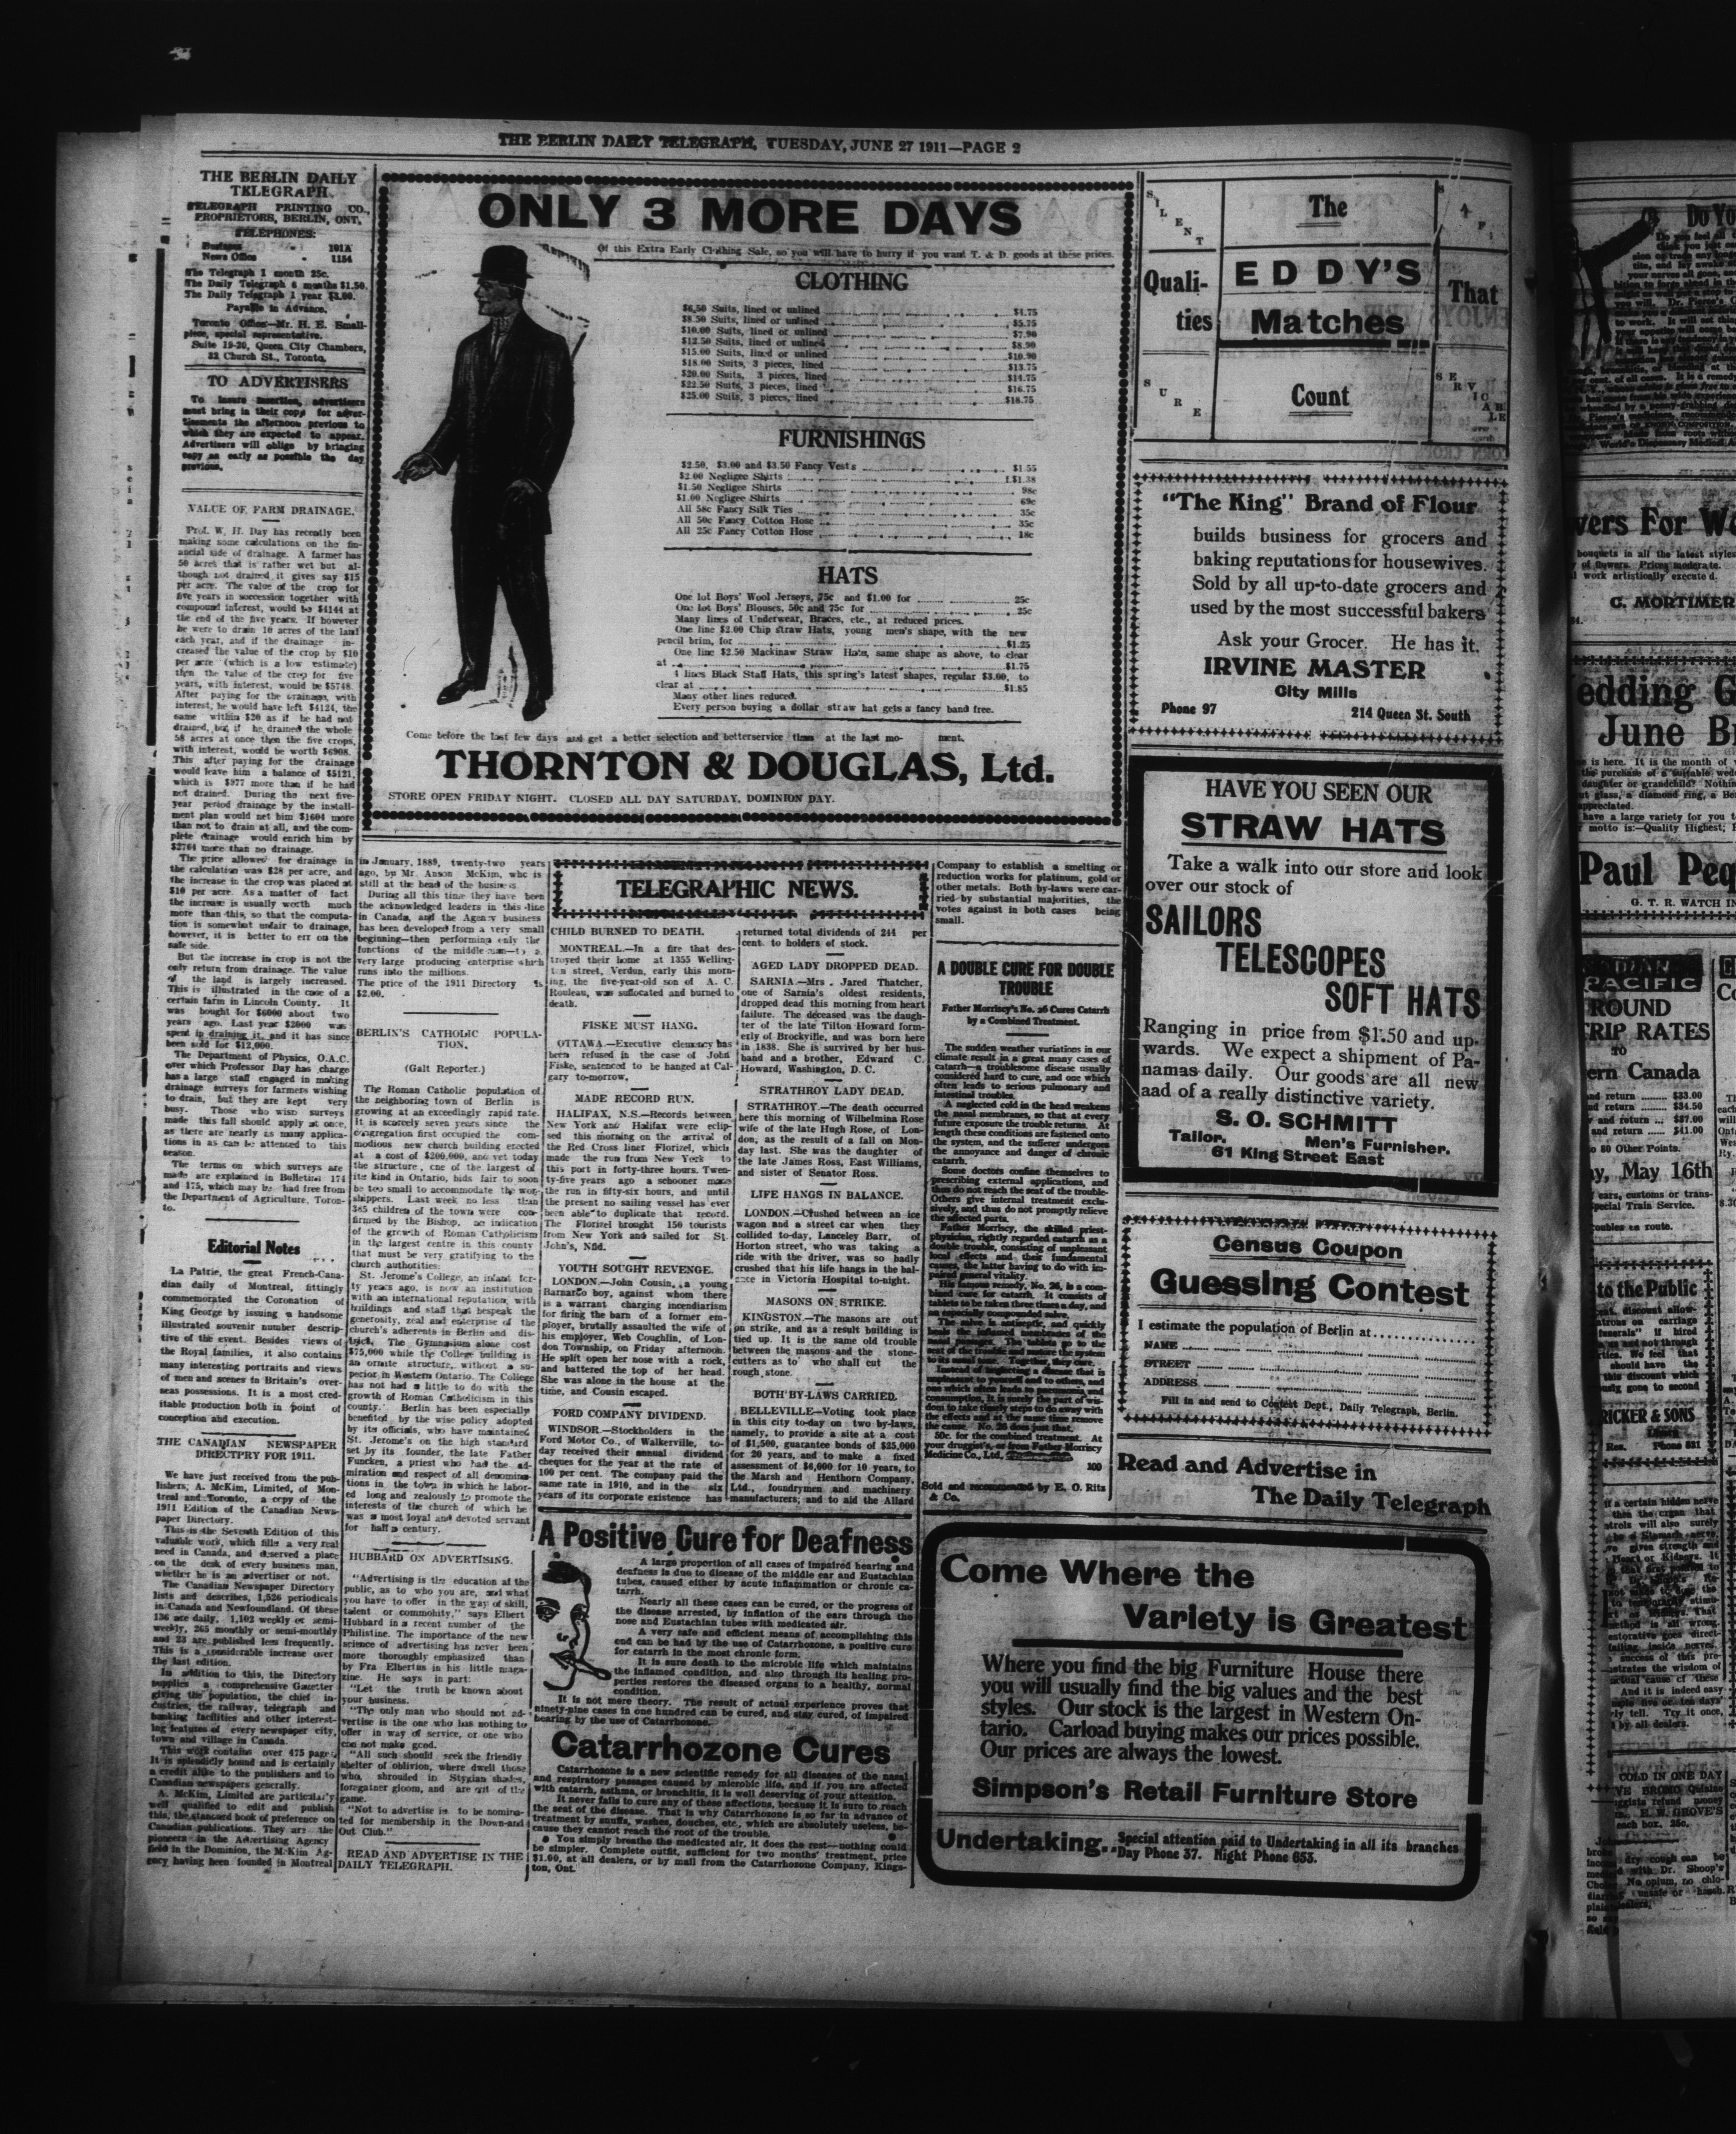 THE BERLIN DAILY TELEGRAPH, TUESDAY, JUNE 27 1911—PAGE 2
THE BERLIN DAILY
TELEGRAPH.
TELEGRAPH PRINTING CO.,
PROPRIETORS, BERLIN, ONT.
TELEPHONES:
Business 101A
News Office 1184
The Telegraph 1 month 25c.
The Daily Telegraph 6 months $1.50.
The Daily Telegraph 1 year $3.00.
Payable in Advance.
Toronto Office—Mr. H. E. Small-
piece, special representative.
Suite 19-20, Queen City Chambers,
32 Church St., Toronto.
TO ADVERTISERS
To insure insertion, advertisers
must bring in their copy for adver-
tisements the afternoon previous to
which they are expected to appear.
Advertisers will oblige by bringing
copy as early as possible the day
previous.
VALUE OF FARM DRAINAGE.
Prof. W. H. Day has recently been
making some calculations on the fin-
ancial side of drainage. A farmer has
50 acres that is rather wet but al-
though not drained it gives say $15
per acre. The value of the crop for
five years in succession together with
compound interest, would be $4144 at
the end of the five years. If however
he were to drain 10 acres of the land
each year, and if the drainage in-
creased the value of the crop by $10
per acre (which is a low estimate)
then the value of the crop for five
years, with interest, would be $5748.
After paying for the drainage, with
interest, he would have left $4124, the
same within $20 as if he had not
drained, but if he drained the whole
50 acres at once then the five crops,
with interest, would be worth $6908.
This after paying for the drainage
would leave him a balance of $5121,
which is $977 more than if he had
not drained. During the next five-
year period drainage by the install-
ment plan would net him $1604 more
than not to drain at all, and the com-
plete drainage would enrich him by
$2764 more than no drainage.
The price allowed for drainage in
the calculation was $28 per acre, and
the increase in the crop was placed at
$10 per acre. As a matter of fact
the increase is usually worth much
more than this, so that the computa-
tion is somewhat unfair to drainage,
however, it is better to err on the
safe side.
But the increase in crop is not the
only return from drainage. The value
of the land is largely increased.
This is illustrated in the case of a
certain farm in Lincoln County. It
was bought for $6000 about two
years ago. Last year $2000 was
spent in draining it, and it has since
been sold for $12,000.
The Department of Physics, O.A.C.
over which Professor Day has charge
has a large staff engaged in making
drainage surveys for farmers wishing
to drain, but they are kept very
busy. Those who wish surveys
made this fall should apply at once,
as there are nearly as many applica-
tions in as can be attended to this
season.
The terms on which surveys are
made are explained in Bulletins 174
and 175, which may be had free from
the Department of Agriculture, Toron-
to.
Editorial Notes
La Patrie, the great French-Cana-
dian daily of Montreal, fittingly
commemorated the Coronation of
King George by issuing a handsome
illustrated souvenir number descrip-
tive of the event. Besides views of
the Royal families, it also contains
many interesting portraits and views
of men and scenes in Britain's over-
seas possessions. It is a most cred-
itable production both in point of
conception and execution.
THE CANADIAN NEWSPAPER
DIRECTPRY FOR 1911.
We have just received from the pub-
lishers, A. McKim, Limited, of Mon-
treal and Toronto, a copy of the
1911 Edition of the Canadian News-
paper Directory.
This is the Seventh Edition of this
valuable work, which fills a very real
need in Canada, and deserved a place
on the desk of every business man,
whether he is an advertiser or not.
The Canadian Newspaper Directory
lists and describes, 1,526 periodicals
in Canada and Newfoundland. Of these
136 are daily, 1,102 weekly or semi-
weekly, 265 monthly or semi-monthly
and 23 are published less frequently.
This is a considerable increase over
the last edition.
In addition to this, the Directory
supplies a comprehensive Gazetter
giving the population, the chief in-
dustries, the railway, telegraph and
banking facilities and other interest-
ing features of every newspaper city,
town and village in Canada.
This work contains over 475 pages,
It is splendidly bound and is certainly
a credit alike to the publishers and to
Canadian newspapers generally.
A. McKim, Limited are particularly
well qualified to edit and publish
this, the standard book of preference on
Canadian publications. They are the
pioneers in the Advertising Agency
field in the Dominion, the McKim Ag-
ency having been founded in Montreal
in January, 1889, twenty-two years
ago, by Mr. Anson McKim, who is
still at the head of the business.
During all this time they have been
the acknowledged leaders in this line
in Canada, and the Agency business
has been developed from a very small
beginning—then performing only the
functions of the middle man—to a
very large producing enterprise which
runs into the millions.
The price of the 1911 Directory is
$2.00.
BERLIN'S CATHOLIC POPULA-
TION.
(Galt Reporter.)
The Roman Catholic population of
the neighboring town of Berlin is
growing at an exceedingly rapid rate.
It is scarcely seven years since the
congregation first occupied the com-
modious new church building erected
at a cost of $200,000, and yet today
the structure, one of the largest of
its kind in Ontario, bids fair to soon
be too small to accommodate the wor-
shippers. Last week no less than
385 children of the town were con-
firmed by the Bishop, no indication
of the growth of Roman Catholicism
in the largest centre in this county
that must be very gratifying to the
church authorities:
St. Jerome's College, an infant for-
ty years ago, is now an institution
with an international reputation, with
buildings and staff that bespeak the
generosity, zeal and enterprise of the
church's adherents in Berlin and dis-
trict. The Gymnasium alone cost
$75,000 while the College building is
an ornite structure, without a su-
perior in Western Ontario. The College
has not had a little to do with the
growth of Roman Catholicism in this
county. Berlin has been especially
benefited by the wise policy adopted
by its officials, who have maintained
St. Jerome's on the high standard
set by its founder, the late Father
Funcken, a priest who had the ad-
miration and respect of all denomina-
tions in the town in which he labor-
ed long and zealously to promote the
interests of the church of which he
was a most loyal and devoted servant
for half a century.
HUBBARD ON ADVERTISING.
"Advertising is the education of the
public, as to who you are, and what
you have to offer in the way of skill,
talent or commohity," says Elbert
Hubbard in a recent number of the
Philistine. The importance of the new
science of advertising has never been
more thoroughly emphasized than
by Fra Elbertus in his little maga-
zine. He says in part:
"Let the truth be known about
your business.
"The only man who should not ad-
vertise is the one who has nothing to
offer in way of service, or one who
can not make good.
"All such should seek the friendly
shelter of oblivion, where dwell those
who, shrouded in Stygian shades,
foregather gloom, and are out of the
game.
"Not to advertise is to be nomina-
ted for membership in the Down-and
Out Club."
READ AND ADVERTISE IN THE
DAILY TELEGRAPH.
ONLY 3 MORE DAYS
Of this Extra Early Clothing Sale, so you will have to hurry if you want T. & D. goods at these prices.
CLOTHING
$6.50 Suits, lined or unlined $4.75
$8.50 Suits, lined or unlined $5.75
$10.00 Suits, lined or unlined $7.90
$12.50 Suits, lined or unlined $8.90
$15.00 Suits, lined or unlined $10.90
$18.00 Suits, 3 pieces, lined $13.75
$20.00 Suits, 3 pieces, lined $14.75
$22.50 Suits, 3 pieces, lined $16.75
$25.00 Suits, 3 pieces, lined $18.75
FURNISHINGS
$2.50, $3.00 and $3.50 Fancy Vests $1.55
$2.00 Negligee Shirts $1.38
$1.50 Negligee Shirts 98c
$1.00 Negligee Shirts 69c
All 58c Fancy Silk Ties 35c
All 50c Fancy Cotton Hose 35c
All 25c Fancy Cotton Hose 18c
HATS
One lot Boys' Wool Jerseys, 75c and $1.00 for 25c
One lot Boys' Blouses, 50c and 75c for 25c
Many lines of Underwear, Braces, etc., at reduced prices.
One line $2.00 Chip straw Hats, young men's shape, with the new
pencil brim, for $1.25
One line $2.50 Mackinaw Straw Hats, same shape as above, to clear
at $1.75
4 lines Black Staff Hats, this spring's latest shapes, regular $3.00, to
clear at $1.85
Many other lines reduced.
Every person buying a dollar straw hat gets a fancy band free.
Come before the last few days and get a better selection and betterservice than at the last mo- ment.
THORNTON & DOUGLAS, Ltd.
STORE OPEN FRIDAY NIGHT. CLOSED ALL DAY SATURDAY, DOMINION DAY.
TELEGRAPHIC NEWS.
CHILD BURNED TO DEATH.
MONTREAL.—In a fire that des-
troyed their home at 1355 Welling-
ton street, Verdun, early this morn-
ing, the five-year-old son of A. C.
Rouleau, was suffocated and burned to
death.
FISKE MUST HANG.
OTTAWA.—Executive clemency has
been refused in the case of John
Fiske, sentenced to be hanged at Cal-
gary to-morrow.
MADE RECORD RUN.
HALIFAX, N.S.—Records between
New York and Halifax were eclip-
sed this morning on the arrival of
the Red Cross liner Florizel, which
made the run from New York to
this port in forty-three hours. Twen-
ty-five years ago a schooner made
the run in fifty-six hours, and until
the present no sailing vessel has ever
been able to duplicate that record.
The Florizel brought 150 tourists
from New York and sailed for St.
John's, Nfld.
YOUTH SOUGHT REVENGE.
LONDON.—John Cousin, a young
Barnardo boy, against whom there
is a warrant charging incendiarism
for firing the barn of a former em-
ployer, brutally assaulted the wife of
his employer, Web Coughlin, of Lon-
don Township, on Friday afternoon.
He split open her nose with a rock,
and battered the top of her head.
She was alone in the house at the
time, and Cousin escaped.
FORD COMPANY DIVIDEND.
WINDSOR.—Stockholders in the
Ford Motor Co., of Walkerville, to-
day received their annual dividend
cheques for the year at the rate of
100 per cent. The company paid the
same rate in 1910, and in the six
years of its corporate existence has
returned total dividends of 244 per
cent. to holders of stock.
AGED LADY DROPPED DEAD.
SARNIA.—Mrs. Jared Thatcher,
one of Sarnia's oldest residents,
dropped dead this morning from heart
failure. The deceased was the daugh-
ter of the late Tilton Howard form-
erly of Brockville, and was born here
in 1838. She is survived by her hus-
band and a brother, Edward C.
Howard, Washington, D. C.
STRATHROY LADY DEAD.
STRATHROY.—The death occurred
here this morning of Wilhelmina Rose
wife of the late Hugh Rose, of Lon-
don, as the result of a fall on Mon-
day last. She was the daughter of
the late James Ross, East Williams,
and sister of Senator Ross.
LIFE HANGS IN BALANCE.
LONDON.—Crushed between an ice
wagon and a street car when they
collided to-day, Lanceley Barr, of
Horton street, who was taking a
ride with the driver, was so badly
crushed that his life hangs in the bal-
ance in Victoria Hospital to-night.
MASONS ON STRIKE.
KINGSTON.—The masons are out
on strike, and as a result building is
tied up. It is the same old trouble
between the masons and the stone-
cutters as to who shall cut the
rough stone.
BOTH BY-LAWS CARRIED.
BELLEVILLE—Voting took place
in this city to-day on two by-laws,
namely, to provide a site at a cost
of $1,500, guarantee bonds of $25,000
for 20 years, and to make a fixed
assessment of $6,000 for 10 years, to
the Marsh and Henthorn Company,
Ltd., foundrymen and machinery
manufacturers; and to aid the Allard
Company to establish a smelting or
reduction works for platinum, gold or
other metals. Both by-laws were car-
ried by substantial majorities, the
votes against in both cases being
small.
A DOUBLE CURE FOR DOUBLE
TROUBLE
Father Morriscy's No. 26 Cures Catarrh
by a Combined Treatment.
The sudden weather variations in our
climate result in a great many cases of
catarrh—a troublesome disease usually
considered hard to cure, and one which
often leads to serious pulmonary and
intestinal troubles.
A neglected cold in the head weakens
the nasal membranes, so that at every
future exposure the trouble returns. At
length these conditions are fastened onto
the system, and the sufferer undergoes
the annoyance and danger of chronic
catarrh.
Some doctors confine themselves to
prescribing external applications, and
thus do not reach the seat of the trouble.
Others give internal treatment exclu-
sively, and thus do not promptly relieve
the affected parts.
Father Morriscy, the skilled priest-
physician, rightly regarded catarrh as a
double trouble, consisting of unpleasant
local effects and their fundamental
causes, the latter having to do with im-
paired general vitality.
His famous remedy, No. 26, is a com-
bined cure for catarrh. It consists of
tablets to be taken three times a day, and
an especially compounded salve.
The salve is antiseptic, and quickly
heals the inflamed membranes of the
nasal passages. The tablets go to the
seat of the trouble and restore the system
to its usual tone. Together, they cure.
Instead of neglecting a disease that is
unpleasant to yourself and to others, and
one which often leads to pneumonia and
consumption, it is surely the part of wis-
dom to take timely steps to do away with
the effects and at the same time remove
the cause. No. 26 does just that.
50c. for the combined treatment. At
your druggist's, or from Father Morriscy
Medicine Co., Ltd.
100
Sold and recommended by E. O. Ritz
& Co.
A Positive Cure for Deafness
A large proportion of all cases of impaired hearing and
deafness is due to disease of the middle ear and Eustachian
tubes, caused either by acute inflammation or chronic ca-
tarrh.
Nearly all these cases can be cured, or the progress of
the disease arrested, by inflation of the ears through the
nose and Eustachian tubes with medicated air.
A very safe and efficient means of accomplishing this
end can be had by the use of Catarrhozone, a positive cure
for catarrh in the most chronic form.
It is sure death to the microbic life which maintains
the inflamed condition, and also through its healing pro-
perties restores the diseased organs to a healthy, normal
condition.
It is not mere theory. The result of actual experience proves that
ninety-nine cases in one hundred can be cured, and stay cured, of impaired
hearing by the use of Catarrhozone.
Catarrhozone Cures
Catarrhozone is a new scientific remedy for all diseases of the nasal
and respiratory passages caused by microbic life, and if you are affected
with catarrh, asthma, or bronchitis, it is well deserving of your attention.
It never fails to cure any of these affections, because it is sure to reach
the seat of the disease. That is why Catarrhozone is so far in advance of
treatment by snuffs, washes, douches, etc., which are absolutely useless, be-
cause they cannot reach the root of the trouble.
You simply breathe the medicated air, it does the rest—nothing could
be simpler. Complete outfit, sufficient for two months' treatment, price
$1.00, at all dealers, or by mail from the Catarrhozone Company, Kings-
ton, Ont.
SILENT
The
Quali-
ties
EDDY'S
Matches
That
SURE
Count
SERVICABLE
"The King" Brand of Flour
builds business for grocers and
baking reputations for housewives.
Sold by all up-to-date grocers and
used by the most successful bakers
Ask your Grocer. He has it.
IRVINE MASTER
City Mills
Phone 97 214 Queen St. South
HAVE YOU SEEN OUR
STRAW HATS
Take a walk into our store and look
over our stock of
SAILORS
TELESCOPES
SOFT HATS
Ranging in price from $1.50 and up-
wards. We expect a shipment of Pa-
namas daily. Our goods are all new
aad of a really distinctive variety.
S. O. SCHMITT
Tailor. Men's Furnisher.
61 King Street East
Census Coupon
Guessing Contest
I estimate the population of Berlin at
NAME
STREET
ADDRESS
Fill in and send to Contest Dept., Daily Telegraph, Berlin.
Read and Advertise in
The Daily Telegraph
Come Where the
Variety is Greatest
Where you find the big Furniture House there
you will usually find the big values and the best
styles. Our stock is the largest in Western On-
tario. Carload buying makes our prices possible.
Our prices are always the lowest.
Simpson's Retail Furniture Store
Undertaking.. Special attention paid to Undertaking in all its branches
Day Phone 37. Night Phone 653.
C. MORTIMER
June
Paul
G. T. R. WATCH
PACIFIC
May 16th
to the Public
RICKER & SONS
Phone 831
COLD IN ONE DAY